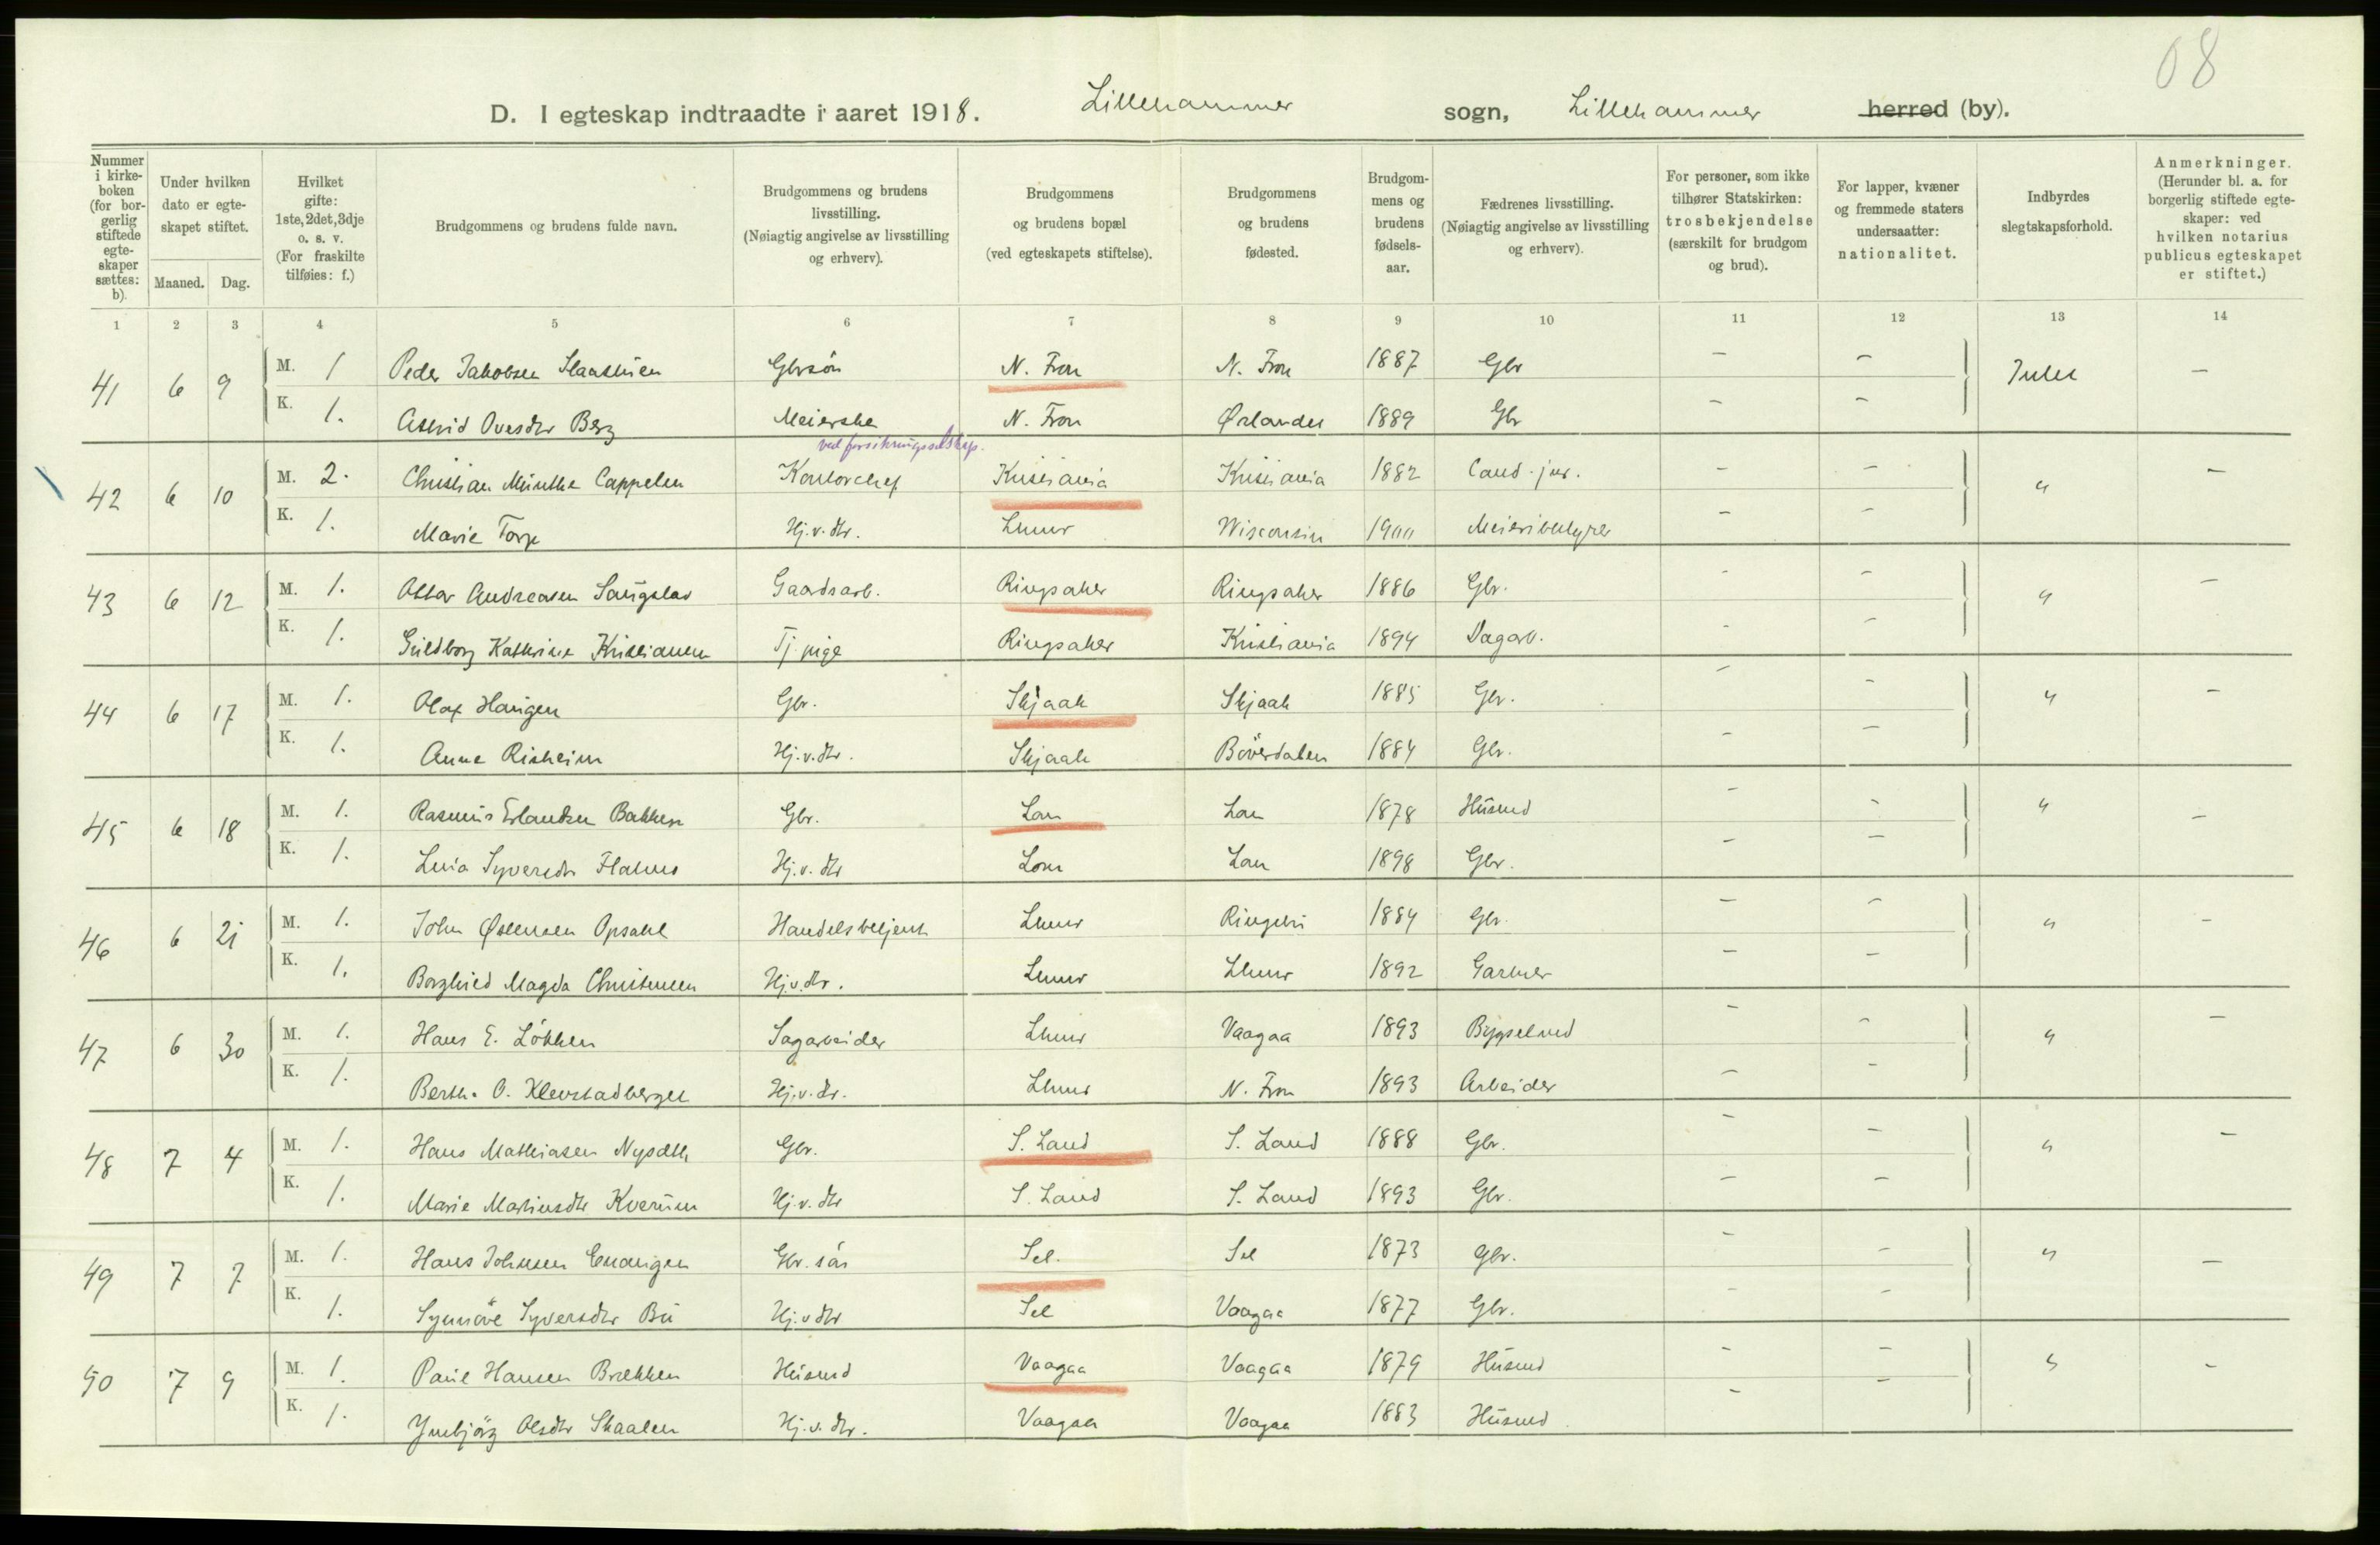 08
D. I egteskap indtraadte i aaret 1918. Lillehammer sogn, Lillehammer herred (by).
Nummer i kirke-boken (for bor-gerlig stiftede egte-skaper sættes: b).
Under hvilken dato er egte-skapet stiftet.
Maaned. Dag.
Hvilket gifte: 1ste, 2det, 3dje o. s. v. (For fraskilte tilføies: f.)
Brudgommens og brudens fulde navn.
Brudgommens og brudens livsstilling. (Nøiagtig angivelse av livsstilling og erhverv).
Brudgommens og brudens bopæl (ved egteskapets stiftelse).
Brudgommens og brudens fødested.
Brudgom-mens og brudens fødsels-aar.
Fædrenes livsstilling. (Nøiagtig angivelse av livsstilling og erhverv).
For personer, som ikke tilhører Statskirken: trosbekjendelse (særskilt for brudgom og brud).
For lapper, kvæner og fremmede staters undersaatter: nationalitet.
Indbyrdes slegtskapsforhold.
Anmerkninger. (Herunder bl. a. for borgerlig stiftede egte-skaper: ved hvilken notarius publicus egteskapet er stiftet.)
1 2 3 4 5 6 7 8 9 10 11 12 13 14
41 6 9 M. 1 Peder Jakobsen Gbrsön N. Fron N. Fron 1887 Gbr – – Intet –
K. 1. Astrid Ovesdtr Berg Meierske N. Fron Ørlandet 1889 Gbr – –
ved forsikringsselskap.
42 6 10 M. 2. Christian Münthe Cappelen Kontorchef Kristiania Kristiania 1882 Cand. jur. – – " –
K. 1. Marie Torp Hj.v.dtr. Lhmr Wisconsin 1900 Meieribestyrer – –
43 6 12 M. 1. Ottar Andreasen Gaardsarb. Ringsaker Ringsaker 1886 Gbr. – – " –
K. 1. Guldborg Kathrine Kristiansen Tj. pige Ringsaker Kristiania 1894 Dagarb. – –
44 6 17 M. 1. Olaf Haugen Gbr. Skjaak Skjaak 1885 Gbr. – – " –
K. 1. Anne Risheim Hj.v.dtr. Skjaak Böverdalen 1884 Gbr. – –
45 6 18 M. 1. Rasmus Erlandsen Bakken Gbr. Lom Lom 1878 Husmd – – " –
K. 1. Syversdtr Hj.v.dtr Lom Lom 1898 Gbr. – –
46 6 21 M. 1. John Østensen Opsahl Handelsbetjent Lhmr Ringebu 1884 Gbr. – – " –
K. 1. Borghild Magda Christensen Hj.v.dtr. Lhmr Lhmr 1892 Gartner – –
47 6 30 M. 1. Hans E. Lökken Sagarbeider Lhmr Vaagaa 1893 Bygselmd – – " –
K. 1. Berth. O. Klevstadberget Hj.v.dr. Lhmr N. Fron 1893 Arbeider – –
48 7 4 M. 1. Hans Mathiasen Nysæth Gbr. S. Land S. Land 1888 Gbr. – – " –
K. 1. Marie Martinsdtr Kverum Hj.v.dtr S. Land S. Land 1893 Gbr. – –
49 7 7 M. 1. Hans Johnsen Gbr. sön Sel. Sel 1873 Gbr. – – " –
K. 1. Synnöve Syversdtr Bu Hj.v dtr Sel Vaagaa 1877 Gbr. – –
50 7 9 M. 1. Paul Hansen Brækken Husmd Vaagaa Vaagaa 1879 Husmd – – " –
K. 1. Ymbjörg Olsdtr Skaalen Hj.v.dtr. Vaagaa Vaagaa 1883 Husmd. –